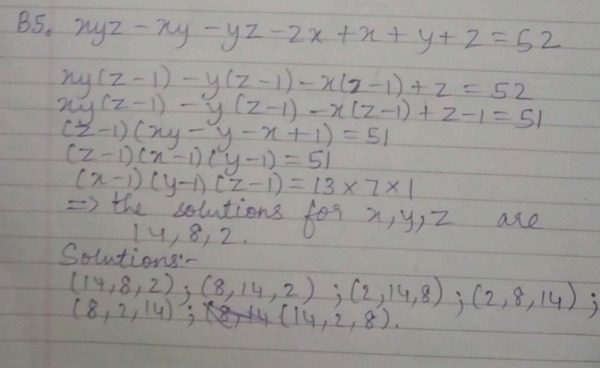 B5. xyz - xy - yz - zx + x + y + z = 52
xy(z-1) - y(z-1) - x(z-1) + z = 52
xy(z-1) - y(z-1) - x(z-1) + z-1 = 51
(z-1)(xy - y - x + 1) = 51
(z-1)(x-1)(y-1) = 51
(x-1)(y-1)(z-1) = 13×7×1
⇒ the solutions for x, y, z are
14, 8, 2.
Solutions:-
(14,8,2); (8,14,2); (2,14,8); (2,8,14);
(8,2,14); (8,14 (14,2,8).